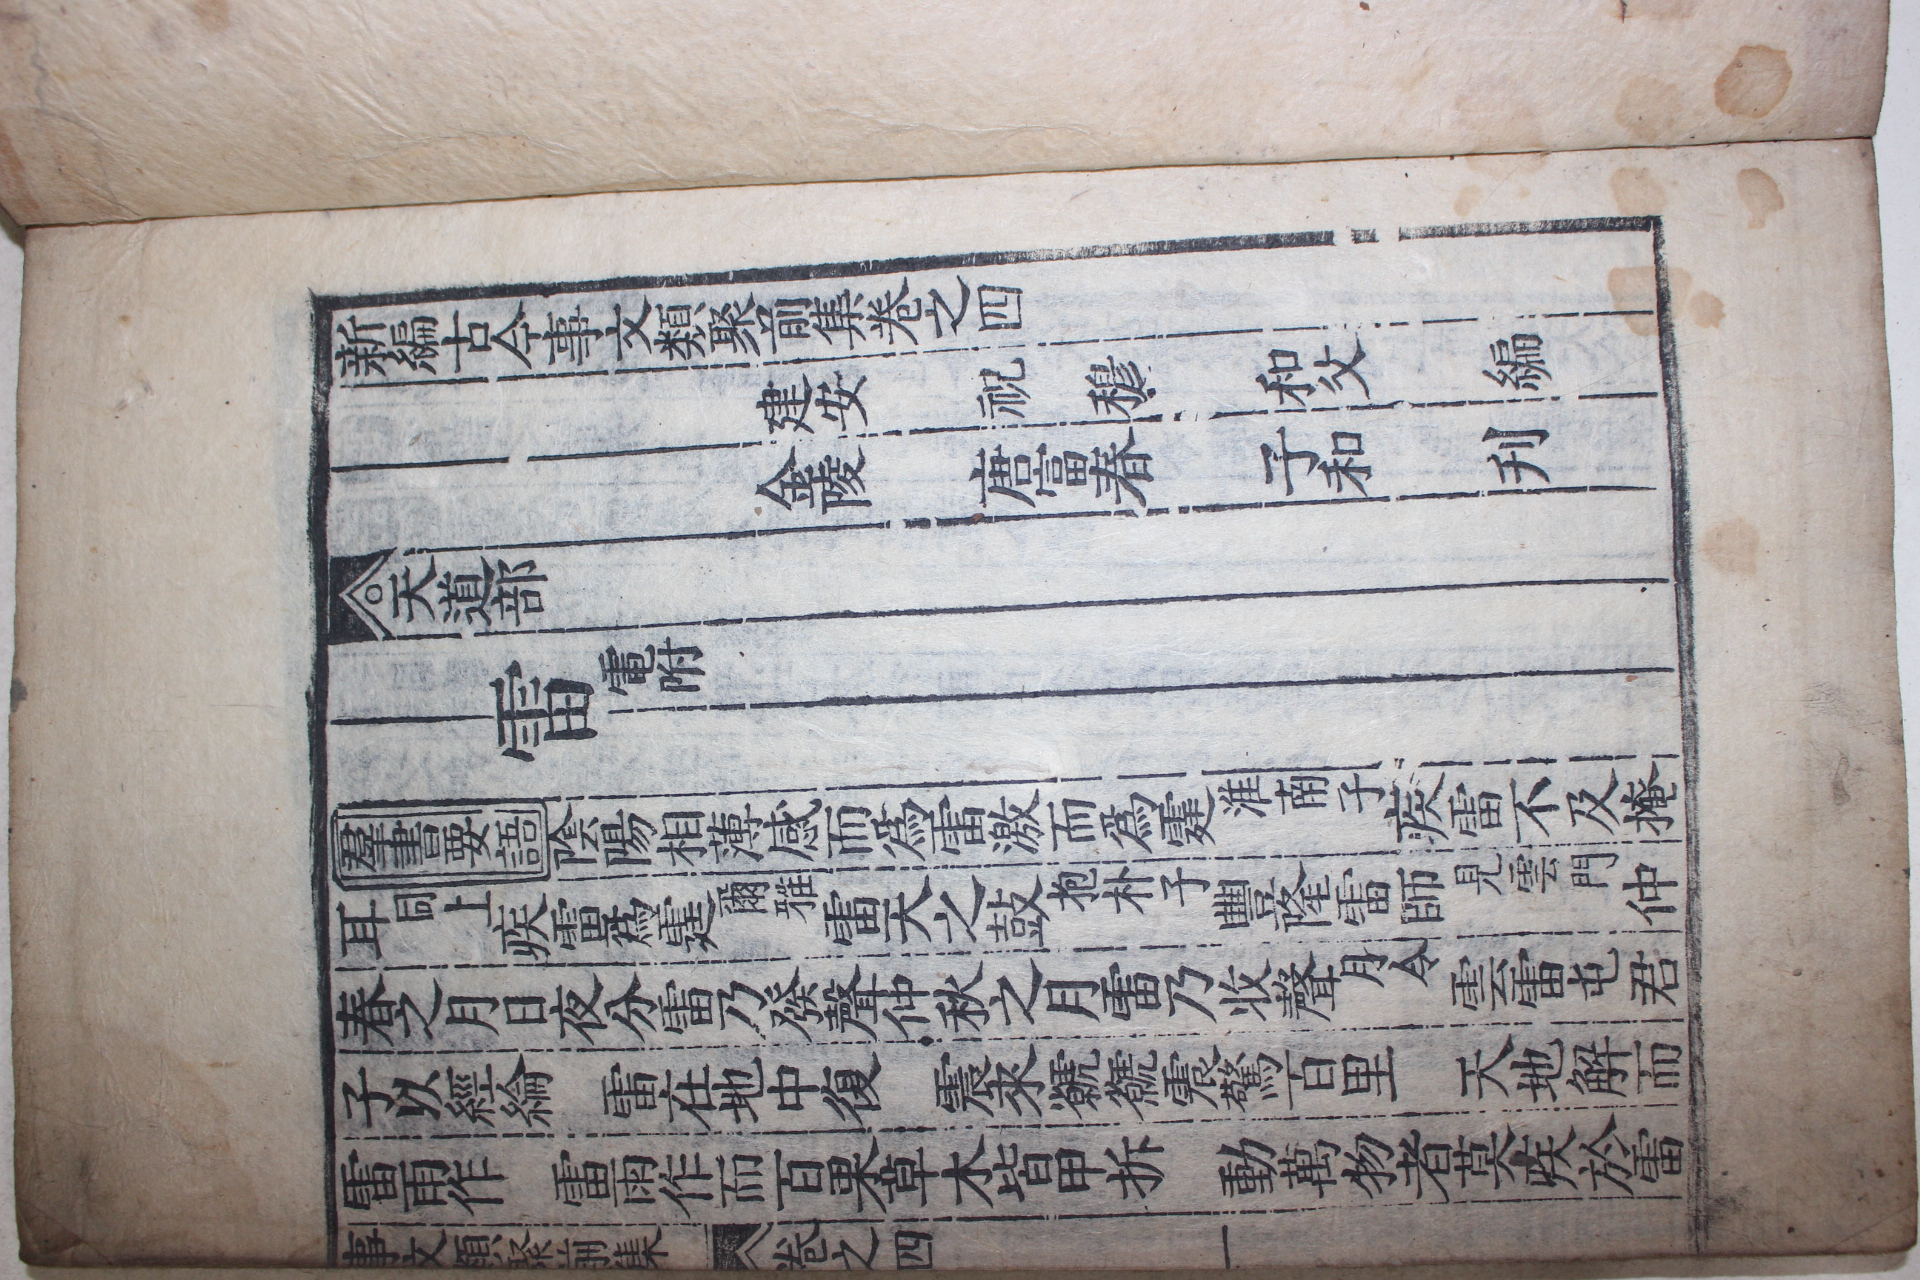 新編古今事文類聚前集卷之四
建安 祝 穆 和父 編
金陵 唐富春 子和 刋
天道部
雷 電附
羣書要語 陰陽相薄感而爲雷激而爲霆 淮南子 疾雷不及掩
耳 同上 疾雷爲霆 爾雅 雷天之鼓 抱朴子 豐隆雷師 見雲門 仲
春之月日夜分雷乃發聲仲秋之月雷乃收聲 月令 雲雷屯君
子以經綸 雷在地中復 震來虩虩震驚百里 天地解而
雷雨作 雷雨作而百果草木皆甲拆 動萬物者莫疾於雷
事文類聚前集 卷之四 一